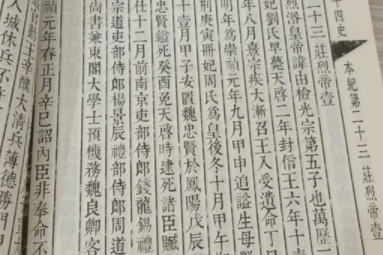 十四史 本紀第二十三 莊烈帝壹
二十三 莊烈帝壹
烈愍皇帝諱由檢光宗第五子也萬歷
妃劉氏早薨天啟二年封信王六年十
年八月熹宗疾大漸召王入受遺命丁
明年為崇禎元年九月甲申追謚生母賢
荆庚寅冊妃周氏為皇后冬十月甲午
壹月甲子安置魏忠賢於鳳陽戊辰
忠賢縊死癸酉免天啟時逮死諸臣贓
仕十二月前南京吏部侍郎錢龍錫禮
宗道吏部侍郎楊景辰禮部侍郎周道
尚書兼東閣大學士預機務魏良卿客
禎元年春正月辛巳詔內臣非奉命不
大清兵薄德勝門
入城休兵不許